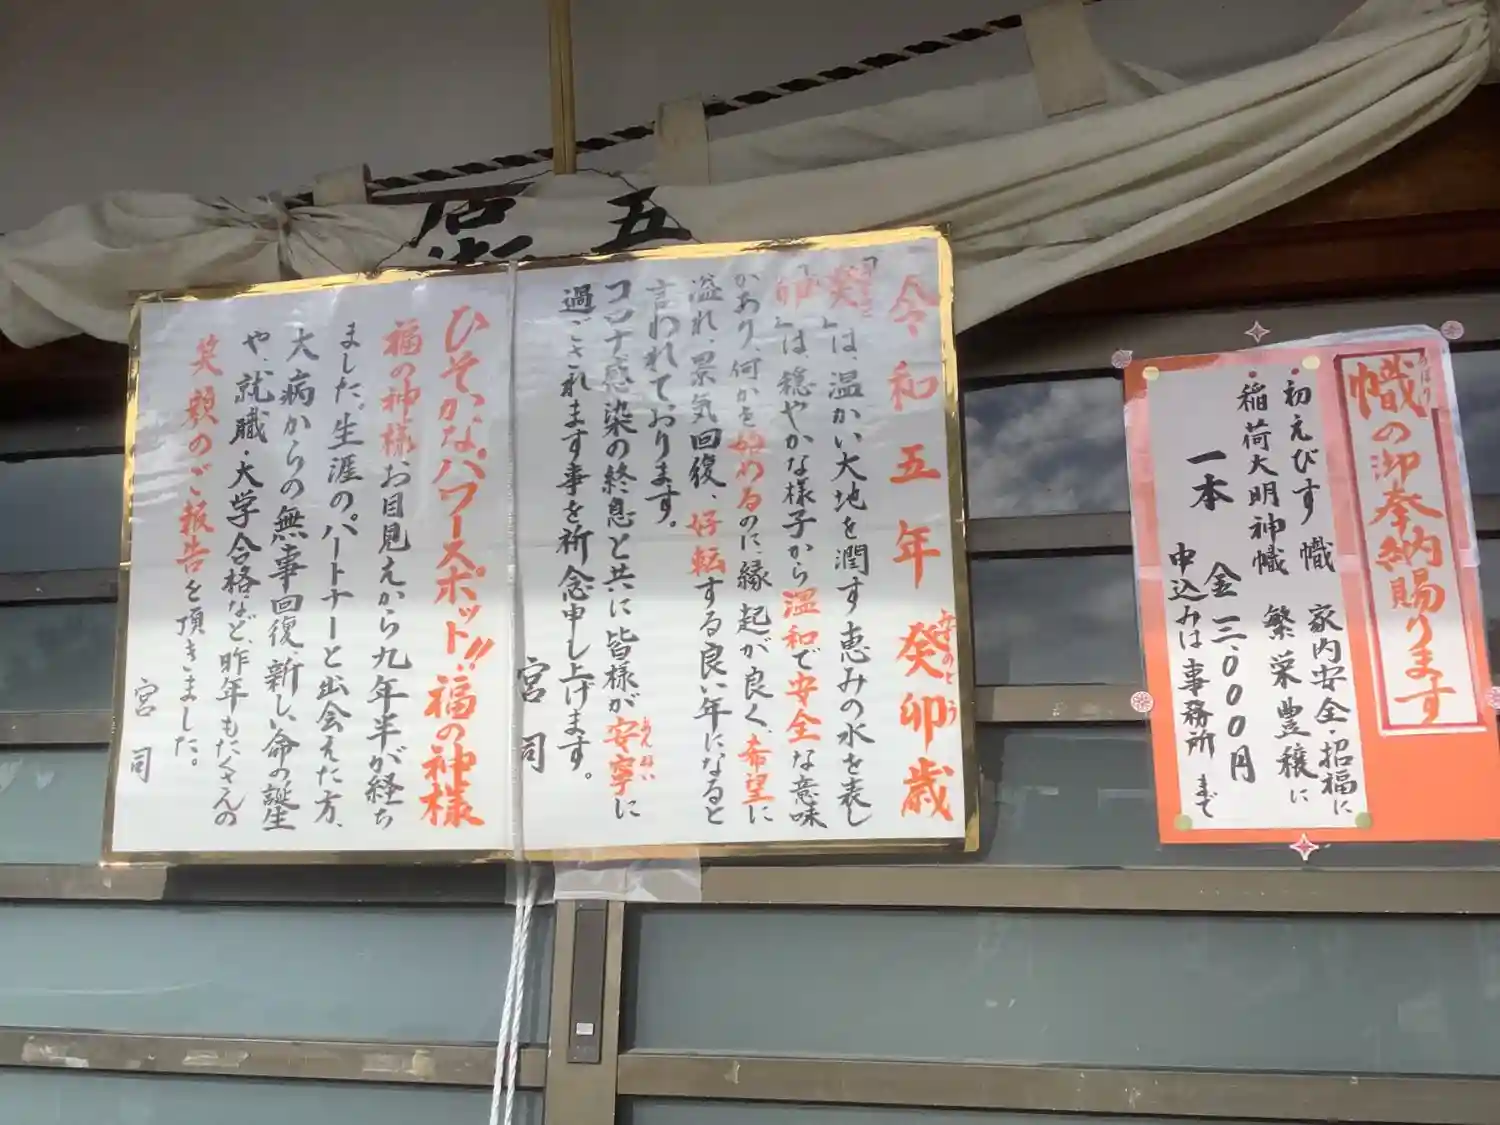 令和五年癸卯歳
みずのと う
『癸』は、温かい大地を潤す恵みの水を表し
『卯』は、穏やかな様子から温和で安全な意味
があり、何かを始めるのに、縁起が良く、希望に
溢れ、景気回復、好転する良い年になると
言われております。
コロナ感染の終息と共に皆様が安寧に
あんねい
過ごされます事を祈念申し上げます。
宮司
ひそかなパワースポット!!福の神様
福の神様お目見えから九年半が経ち
ました。生涯のパートナーと出会えた方、
大病からの無事回復、新しい命の誕生
や、就職・大学合格など、昨年もたくさんの
笑顔のご報告を頂きました。
宮司
幟の御奉納賜ります
のぼり
・初えびす幟 家内安全・招福に
・稲荷大明神幟 繁栄豊穣に
一本 金三、000円
申込みは事務所まで
五